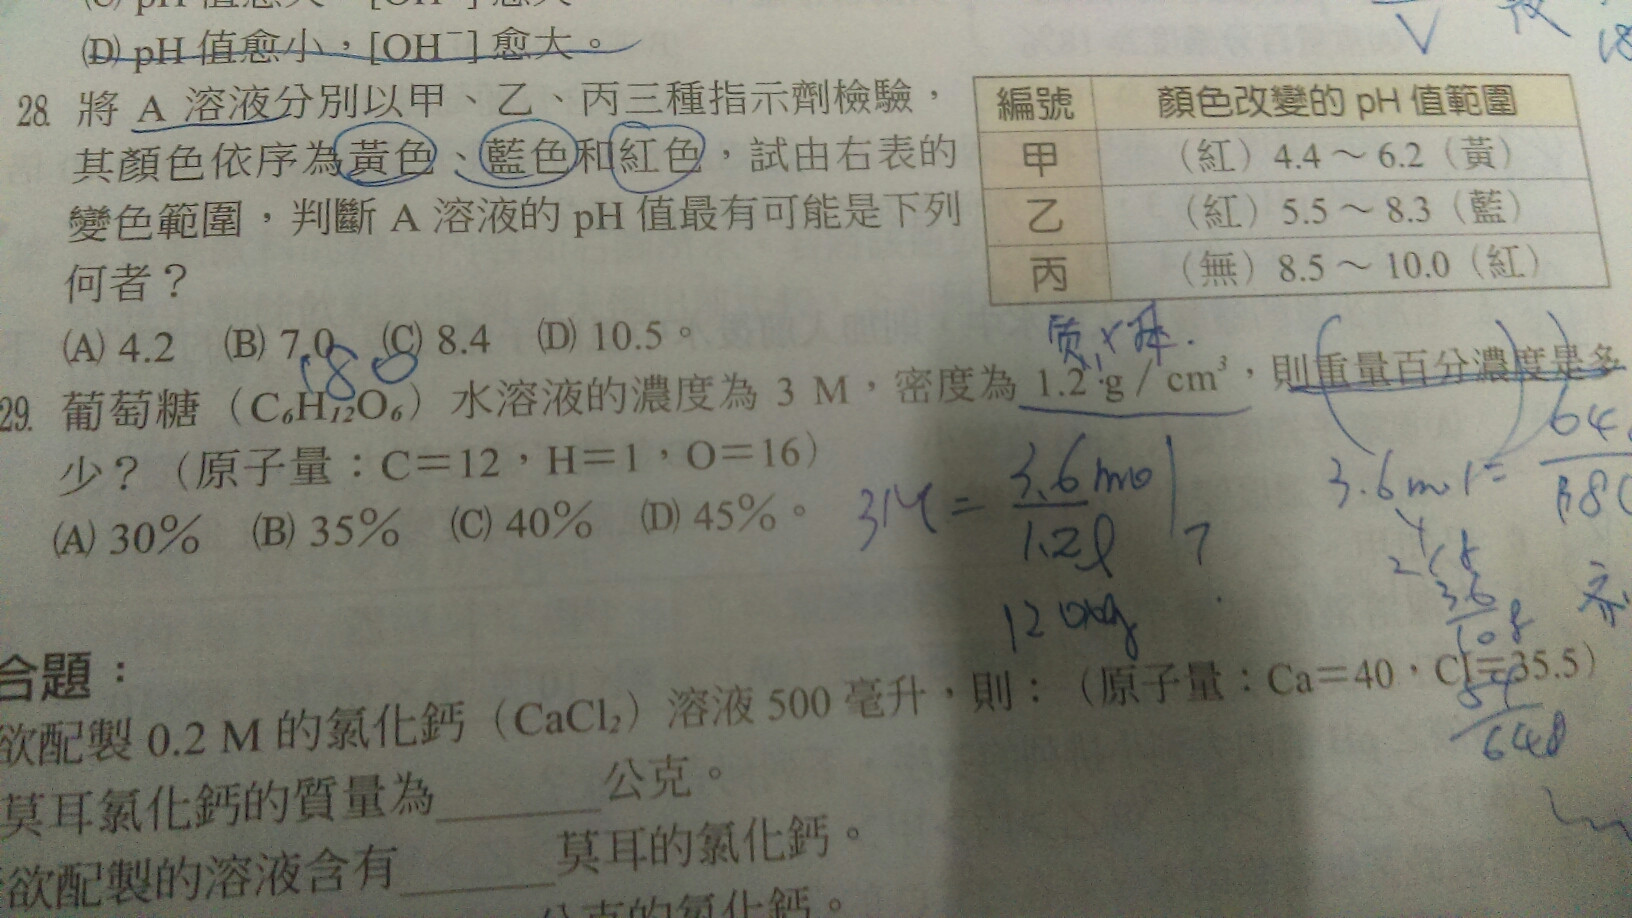 (C) pH 值愈大，[OH⁻] 愈大
(D) pH 值愈小，[OH⁻] 愈大。
28. 將 A 溶液分別以甲、乙、丙三種指示劑檢驗，
其顏色依序為黃色、藍色和紅色，試由右表的
變色範圍，判斷 A 溶液的 pH 值最有可能是下列
何者？
(A) 4.2 (B) 7.0 (C) 8.4 (D) 10.5。
編號 顏色改變的 pH 值範圍
甲 （紅）4.4～6.2（黃）
乙 （紅）5.5～8.3（藍）
丙 （無）8.5～10.0（紅）
180
29. 葡萄糖（C₆H₁₂O₆）水溶液的濃度為 3 M，密度為 1.2 g／cm³，則重量百分濃度是多
少？（原子量：C＝12，H＝1，O＝16）
(A) 30％ (B) 35％ (C) 40％ (D) 45％。
3M = 3.6 mol
1.2 l
3.6 mol =
36
648
合題：
欲配製 0.2 M 的氯化鈣（CaCl₂）溶液 500 毫升，則：（原子量：Ca＝40，Cl＝35.5）
莫耳氯化鈣的質量為 公克。
欲配製的溶液含有 莫耳的氯化鈣。
公克的氯化鈣。